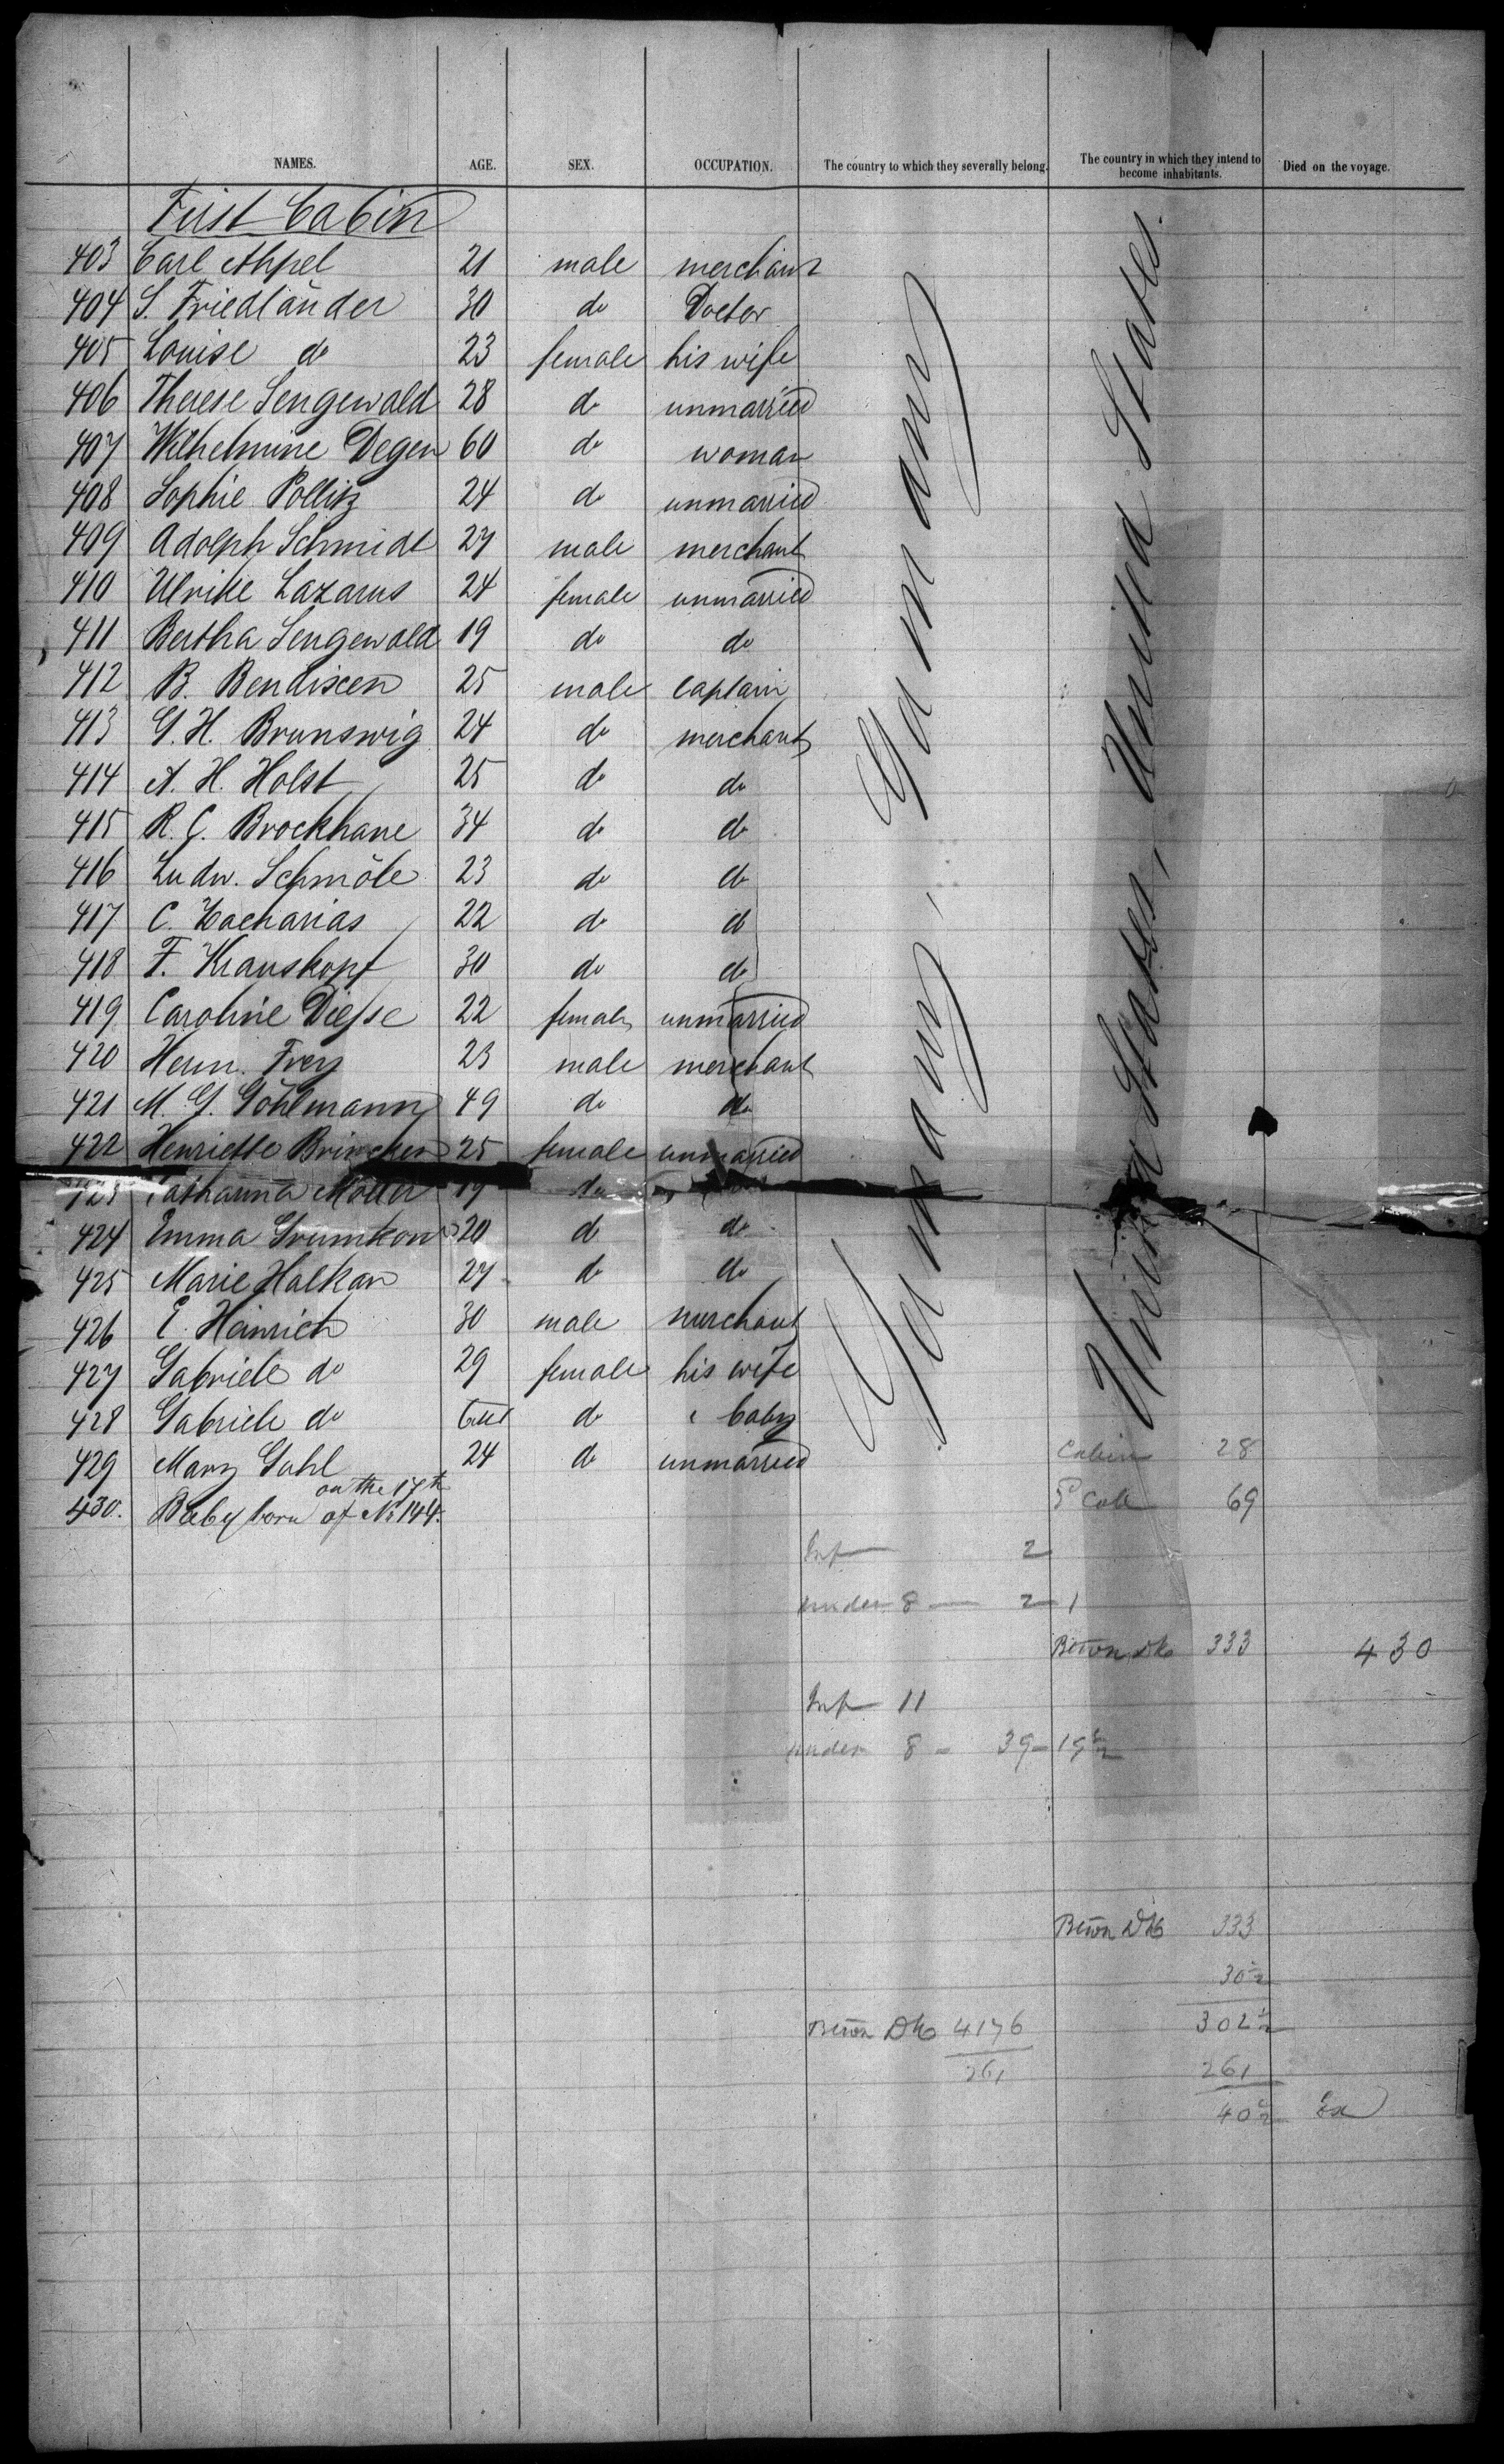 NAMES. AGE. SEX. OCCUPATION. The country to which they severally belong. The country in which they intend to become inhabitants. Died on the voyage.
First Cabin
403 Carl Ahpel 21 male merchant
404 S. Friedländer 30 do Doctor
405 Louise do 23 female his wife
406 Therese Sengewald 28 do unmarried
407 Wilhelmine Degen 60 do woman
408 Sophie Pollitz 24 do unmarried
409 Adolph Schmidt 27 male merchant
410 Ulrike Lazarus 24 female unmarried
411 Bertha Sengewald 19 do do
412 B. Bendixen 25 male captain
413 G. H. Brunswig 24 do merchant
414 A. H. Holst 25 do do
415 R. C. Brockhane 34 do do
416 Ludw. Schmöle 23 do do
417 C. Zacharias 22 do do
418 F. Krauskopf 30 do do
419 Caroline Diesse 22 female unmarried
420 Herm. Frey 23 male merchant
421 M. G. Göhlmann 49 do do
422 Henriette Brincken 25 female unmarried
423 Catharina Möller 19 do
424 Emma Grumkow 20 do do
425 Marie Halkan 27 do do
426 E. Heinrich 30 male merchant
427 Gabriele do 29 female his wife
428 Gabriele do do baby
429 Mary Gahl 24 do unmarried
on the 17th
430. Baby born of No 144.
Germany, Germany
United States, United States.
Cabin 28
69
Inf 2
under 8 — 2 1
Betwn Dk 333 430
Inf 11
under 8 - 39 - 19 1/2
Betwn Dk 333
30 1/2
Betwn Dk 4176 302 1/2
261 261
40 1/2 Ex